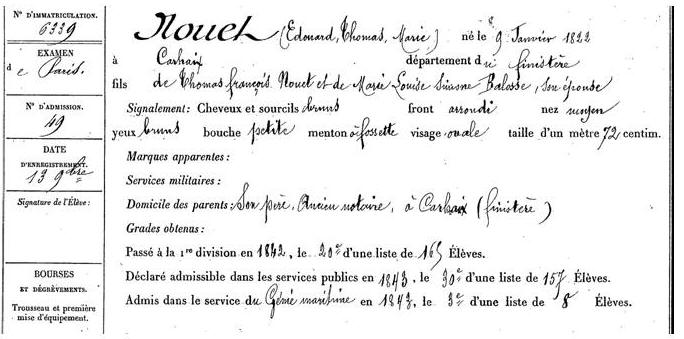 N° D'IMMATRICULATION.
6339
EXAMEN
de Paris.
N° D'ADMISSION.
49
DATE
D'ENREGISTREMENT.
13 9bre
Signature de l'Élève :
BOURSES
ET DÉGRÈVEMENTS.
Trousseau et première
mise d'équipement.
Nouet (Edouard, Thomas, Marie,) né le 9 Janvier 1822
à Carhaix département du finistère
fils de Thomas françois Nouet et de Marie Louise Balosse, Son épouse
Signalement : Cheveux et sourcils bruns front arrondi nez moyen
yeux bruns bouche petite menton à fossette visage ovale taille d'un mètre 72 centim.
Marques apparentes :
Services militaires :
Domicile des parents : Son père, Ancien notaire, à Carhaix (finistère)
Grades obtenus :
Passé à la 1re division en 1842, le 20e d'une liste de 165 Élèves.
Déclaré admissible dans les services publics en 1843, le 30e d'une liste de 157 Élèves.
Admis dans le service du Génie maritime en 1843, le 3e d'une liste de 8 Élèves.